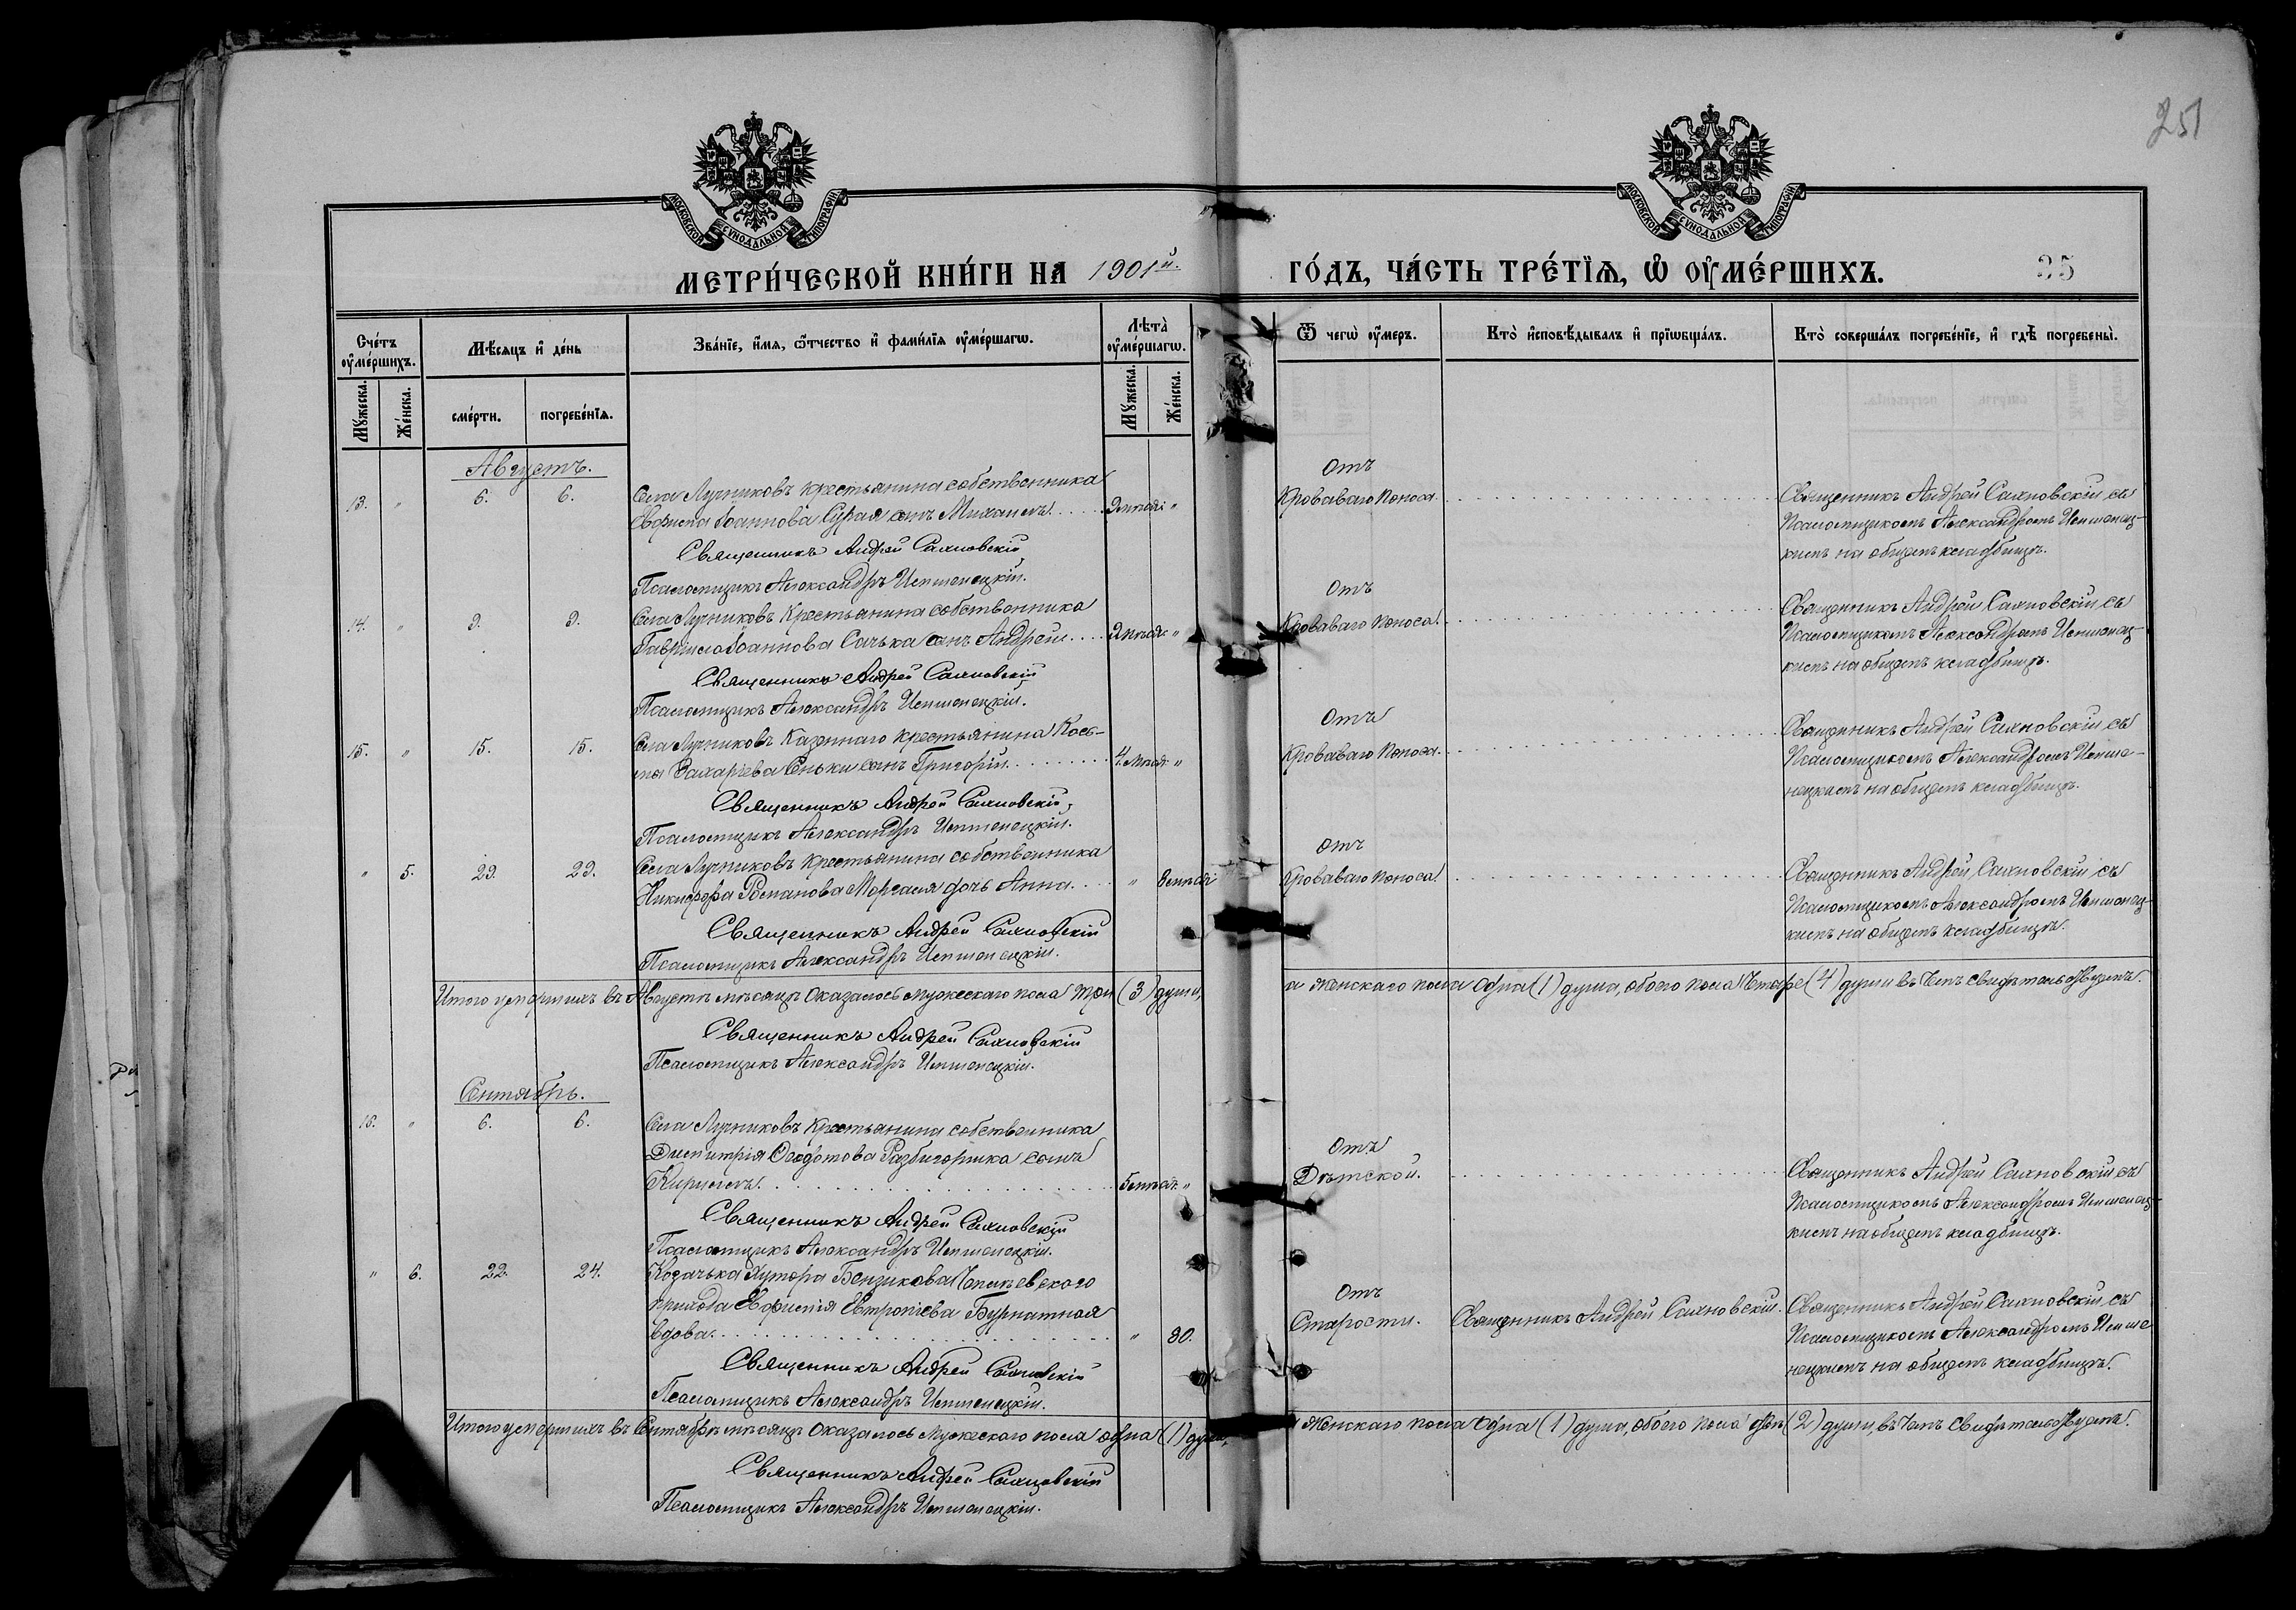 251
МОСКОВСКОЙ СѴНОДАЛЬНОЙ ТИПОГРАФІИ
МОСКОВСКОЙ СѴНОДАЛЬНОЙ ТИПОГРАФІИ
МЕТРИ́ЧЕСКОЙ КНИ́ГИ НА 1901й.
ГО́ДЪ, ЧА́СТЬ ТРЕ́ТІѦ, Ѡ ОУМЕ́РШИХЪ.
35
Сче́тъ оуме́ршихъ.
Мꙋжеска.
Же́нска.
Мѣсяцъ и де́нь
сме́рти.
погребе́нїѧ.
Зва́нїе, и́мѧ, ѻ́тчество и фами́лїѧ оуме́ршагѡ.
Лѣта̀ оуме́ршагѡ.
Мꙋжеска.
Же́нска.
Ѿ чегѡ̀ оу́меръ.
Кто̀ и҆сповѣ́дывалъ и прїѡбща́лъ.
Кто̀ соверша́лъ погребе́нїе, и гдѣ̀ погребены̀.
Августъ.
13. " 6. 6. Села Лучниковъ крестьянина собственника
Іоаннова сынъ Михаилъ.
Священникъ Андрей Сахновскій
Псаломщикъ Александръ
Отъ
Кроваваго поноса
Священникъ Андрей Сахновскій съ
Псаломщикомъ Александромъ
на общемъ кладбищѣ.
14. " 9. 9. Села Лучниковъ Крестьянина собственника
Гавріила Іоаннова сынъ Андрей
Священникъ Андрей Сахновскій
Псаломщикъ Александръ
Отъ
Кроваваго поноса.
Священникъ Андрей Сахновскій съ
Псаломщикомъ Александромъ
на общемъ кладбищѣ.
15. " 15. 15. Села Лучниковъ Казеннаго крестьянина Кось-
мы Захаріева Сеньки сынъ Григорій
Священникъ Андрей Сахновскій,
Псаломщикъ Александръ
Отъ
Кроваваго поноса
Священникъ Андрей Сахновскій съ
Псаломщикомъ Александромъ
на общемъ кладбищѣ.
" 5. 29. 29. Села Лучниковъ крестьянина собственника
Никифора Романова дочь Анна.
Священникъ Андрей Сахновскій
Псаломщикъ Александръ
Отъ
Кроваваго поноса
Священникъ Андрей Сахновскій съ
Псаломщикомъ Александромъ
на общемъ кладбищѣ.
Итого умершихъ въ Августѣ мѣсяцѣ оказалось мужескаго пола три (3) души,
а женскаго пола одна (1) душа, обоего пола (4) души въ чемъ свидѣтельствуемъ.
Священникъ Андрей Сахновскій
Псаломщикъ Александръ
Сентябрь.
16. " 6. 6. Села Лучниковъ крестьянина собственника
Димитрія сынъ
Кириллъ.
Священникъ Андрей Сахновскій
Псаломщикъ Александръ
Отъ
Дѣтской.
Священникъ Андрей Сахновскій съ
Псаломщикомъ Александромъ
на общемъ кладбищѣ.
" 6. 22. 24. Козачька Хутора
прихода Евфимія Евтропіева
вдова. " 80.
Священникъ Андрей Сахновскій
Псаломщикъ Александръ
Отъ
Старости.
Священникъ Андрей Сахновскій.
Священникъ Андрей Сахновскій съ
Псаломщикомъ Александромъ
на общемъ кладбищѣ.
Итого умершихъ въ Сентябрѣ мѣсяцѣ оказалось мужескаго пола одна (1) душа,
и женскаго пола одна (1) душа, обоего пола двѣ (2) души, въ чемъ свидѣтельствуемъ.
Священникъ Андрей Сахновскій
Псаломщикъ Александръ